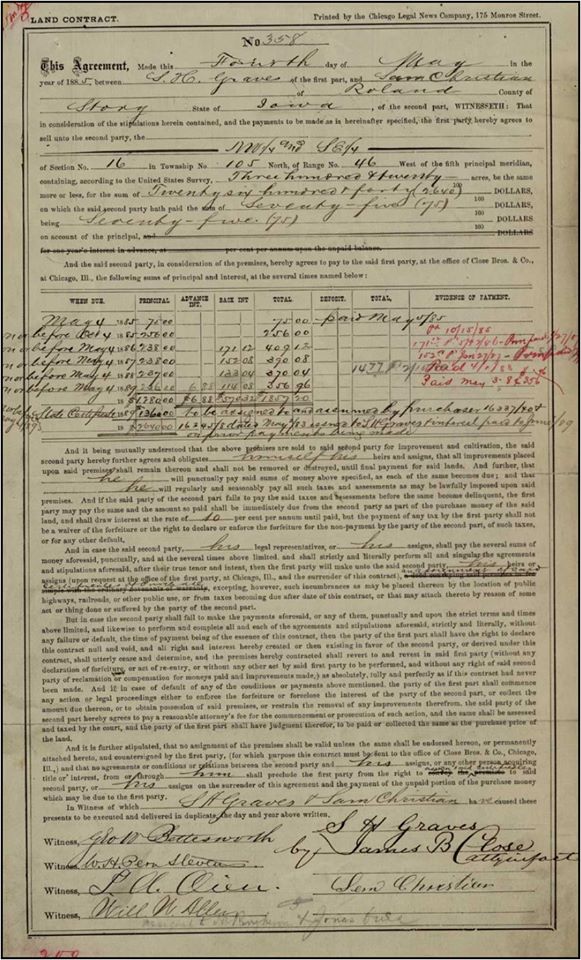 LAND CONTRACT.
Printed by the Chicago Legal News Company, 175 Monroe Street.
No 358
This Agreement, Made this Fourth day of May in the
year of 1885, between S. H. Graves of the first part, and Sam Christian
of Roland County of
Story State of Iowa, of the second part, WITNESSETH: That
in consideration of the stipulations herein contained, and the payments to be made as hereinafter specified, the first party hereby agrees to
sell unto the second party, the
NW/4 and SE/4
of Section No. 16 in Township No 105 North, of Range No. 46 West of the fifth principal meridian,
containing, according to the United States Survey, Three hundred & twenty acres, be the same
more or less, for the sum of Twenty six hundred & forty (2640) 100 DOLLARS,
on which the said second party hath paid the sum of Seventy-five (75) 100 DOLLARS,
being Seventy-five (75) 100 DOLLARS
on account of the principal, and DOLLARS
for one year's interest in advance, at per cent per annum upon the unpaid balance.
And the said second party, in consideration of the premises, hereby agrees to pay to the said first party, at the office of Close Bros. & Co.,
at Chicago, Ill., the following sums of principal and interest, at the several times named below:
WHEN DUE. PRINCIPAL ADVANCE INT. BACK INT TOTAL DEPOSIT. TOTAL, EVIDENCE OF PAYMENT.
May 4 1885 75 00 75 00 paid May 5/85
before Oct 4 1885 256 00 256 00 Pd 10/15/85
before May 4 1886 238 00 171 12 409 12
before May 4 1887 238 00 152 08
before May 4 1888 237 00 133 04 370 04 Paid
before May 4 1889 236 00 6 85 114 08 356 96 Paid May 3- 89 356
State Certificate to be assigned to and assumed by purchaser
And it being mutually understood that the above premises are sold to said second party for improvement and cultivation, the said
second party hereby further agrees and obligates himself his heirs and assigns, that all improvements placed
upon said premises shall remain thereon and shall not be removed or destroyed, until final payment for said lands. And further, that
he will punctually pay said sums of money above specified, as each of the same becomes due; and that
he will regularly and seasonably pay all such taxes and assessments as may be lawfully imposed upon said
premises. And if the said party of the second part fails to pay the said taxes and assessments before the same become delinquent, the first
party may pay the same and the amount so paid shall be immediately due from the second party as part of the purchase money of the said
land, and shall draw interest at the rate of 10 per cent per annum until paid, but the payment of any tax by the first party shall not
be a waiver of the forfeiture or the right to declare or enforce the forfeiture for the non-payment by the party of the second part, of such taxes,
or for any other default,
And in case the said second party, his legal representatives, or his assigns, shall pay the several sums of
money aforesaid, punctually, and at the several times above limited, and shall strictly and literally perform all and singular the agreements
and stipulations aforesaid, after their true tenor and intent, then the first party will make unto the said second party his heirs or
assigns (upon request at the office of the first party, at Chicago, Ill., and the surrender of this contract),
excepting, however, such incumbrances as may be placed thereon by the location of public
highways, railroads, or other public use, or from taxes becoming due after date of this contract, or that may attach thereto by reason of some
act or thing done or suffered by the party of the second part.
But in case the second party shall fail to make the payments aforesaid, or any of them, punctually and upon the strict terms and times
above limited, and likewise to perform and complete all and each of the agreements and stipulations aforesaid, strictly and literally, without
any failure or default, the time of payment being of the essence of this contract, then the party of the first part shall have the right to declare
this contract null and void, and all right and interest hereby created or then existing in favor of the second party, or derived under this
contract, shall utterly cease and determine, and the premises hereby contracted shall revert to and revest in said first party (without any
declaration of forfeiture, or act of re-entry, or without any other act by said first party to be performed, and without any right of said second
party of reclamation or compensation for moneys paid and improvements made,) as absolutely, fully and perfectly as if this contract had never
been made. And if in case of default of any of the conditions or payments above mentioned, the party of the first part shall commence
any action or legal proceedings either to enforce or foreclose the interest of the party of the second part, or collect the
amount due thereon, or to obtain possession of said premises, or restrain the removal of any improvements therefrom, the said party of the
second part hereby agrees to pay a reasonable attorney's fee for the commencement or prosecution of such action, and the same shall be assessed
and taxed by the court, and the party of the first part shall have judgment therefor, to be paid or collected the same as the purchase price of
the land.
And it is further stipulated, that no assignment of the premises shall be valid unless the same shall be endorsed hereon, or permanently
attached hereto, and countersigned by the first party, (for which purpose this contract must be sent to the office of Close Bros. & Co., Chicago,
Ill.;) and that no agreements or conditions or relations between the second party and his assigns, or any other person acquiring
title or interest, from or through him shall preclude the first party from the right to to said
second party, or his assigns on the surrender of this agreement and the payment of the unpaid portion of the purchase money
which may be due to the first party.
In Witness of which S H Graves & Sam Christian have caused these
presents to be executed and delivered in duplicate, the day and year above written.
Witness, Geo W Bettesworth S H Graves
Witness, W. H. Penn Steven by James B Close
atty in fact
Witness,
Witness, Will N.